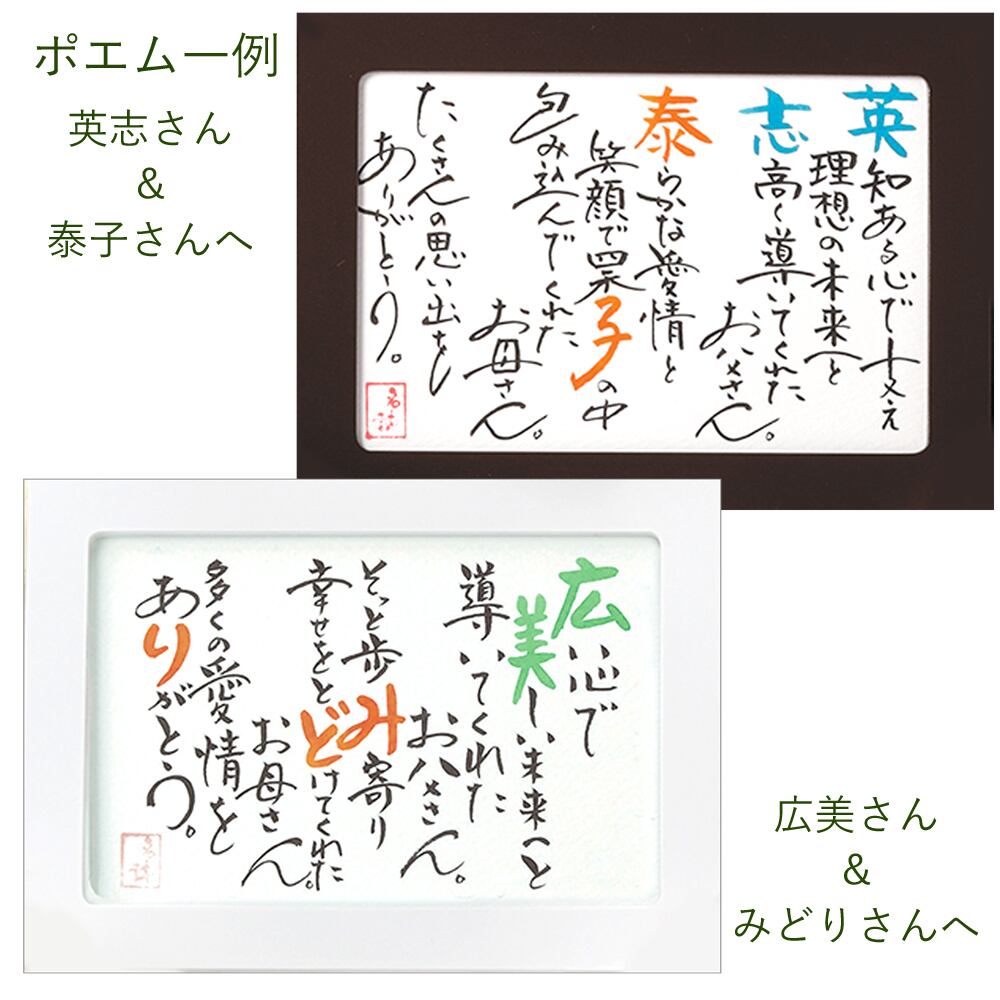 ポエム一例
英志さん
&
泰子さんへ
英知ある心で支え
理想の未来へと
志高く導いてくれた
お父さん。
泰らかな愛情と
笑顔で果子の中
包み込んでくれた
お母さん。
たくさんの思い出をし
ありがとう。
広い心で
美しい未来へと
導いてくれた
お父さん。
そっと歩み寄り
幸せをとどけてくれた
お母さん。
多くの愛情をし
ありがとう。
広美さん
&
みどりさんへ